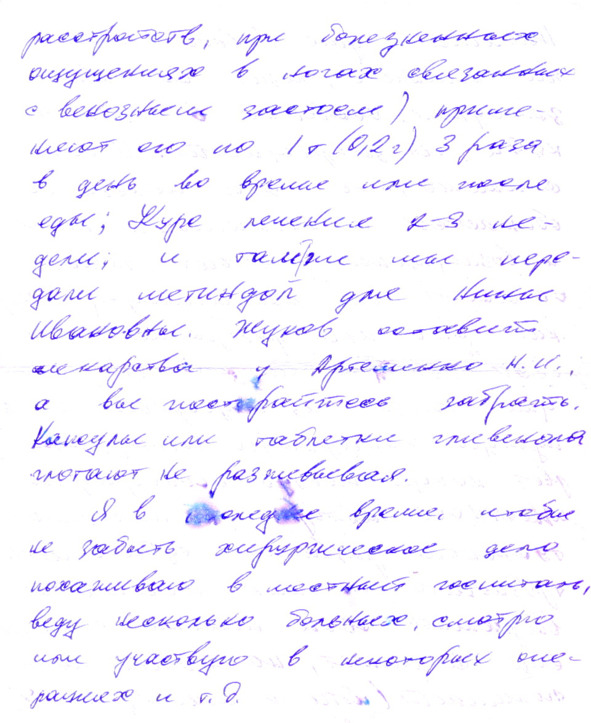 расстройств, при болезненных
ощущениях в ногах связанных
с венозным застоем) приме-
няют его по 1 т (0,2 г) 3 раза
в день во время или после
еды; Курс лечения 2-3 не-
дели; и также мы пере-
дали метиндол для Нины
Ивановны. Жуков оставит
лекарства у Артеменко Н.И.,
а вы постарайтесь забрать.
Капсулы или таблетки гливенола
глотают не разжевывая.
Я в последнее время, чтобы
не забыть хирургическое дело
похаживаю в местный госпиталь,
веду несколько больных, смотрю
или участвую в некоторых опе-
рациях и т.д.